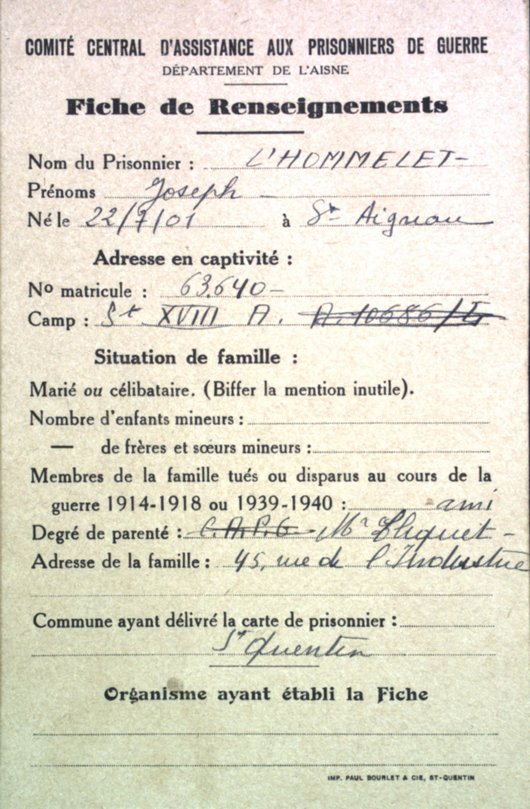 COMITÉ CENTRAL D'ASSISTANCE AUX PRISONNIERS DE GUERRE
DÉPARTEMENT DE L'AISNE
Fiche de Renseignements
Nom du Prisonnier : L'HOMMELET
Prénoms Joseph
Né le 22/7/01 à St Aignan
Adresse en captivité :
No matricule : 63.640
Camp : St XVIII A. A.10686/
Situation de famille :
Marié ou célibataire. (Biffer la mention inutile).
Nombre d'enfants mineurs :
— de frères et sœurs mineurs :
Membres de la famille tués ou disparus au cours de la
guerre 1914-1918 ou 1939-1940 : ami
Degré de parenté : Mr
Adresse de la famille : 45, rue de l'Industrie
Commune ayant délivré la carte de prisonnier :
St Quentin
Organisme ayant établi la Fiche
IMP. PAUL BOURLET & CIE, ST-QUENTIN